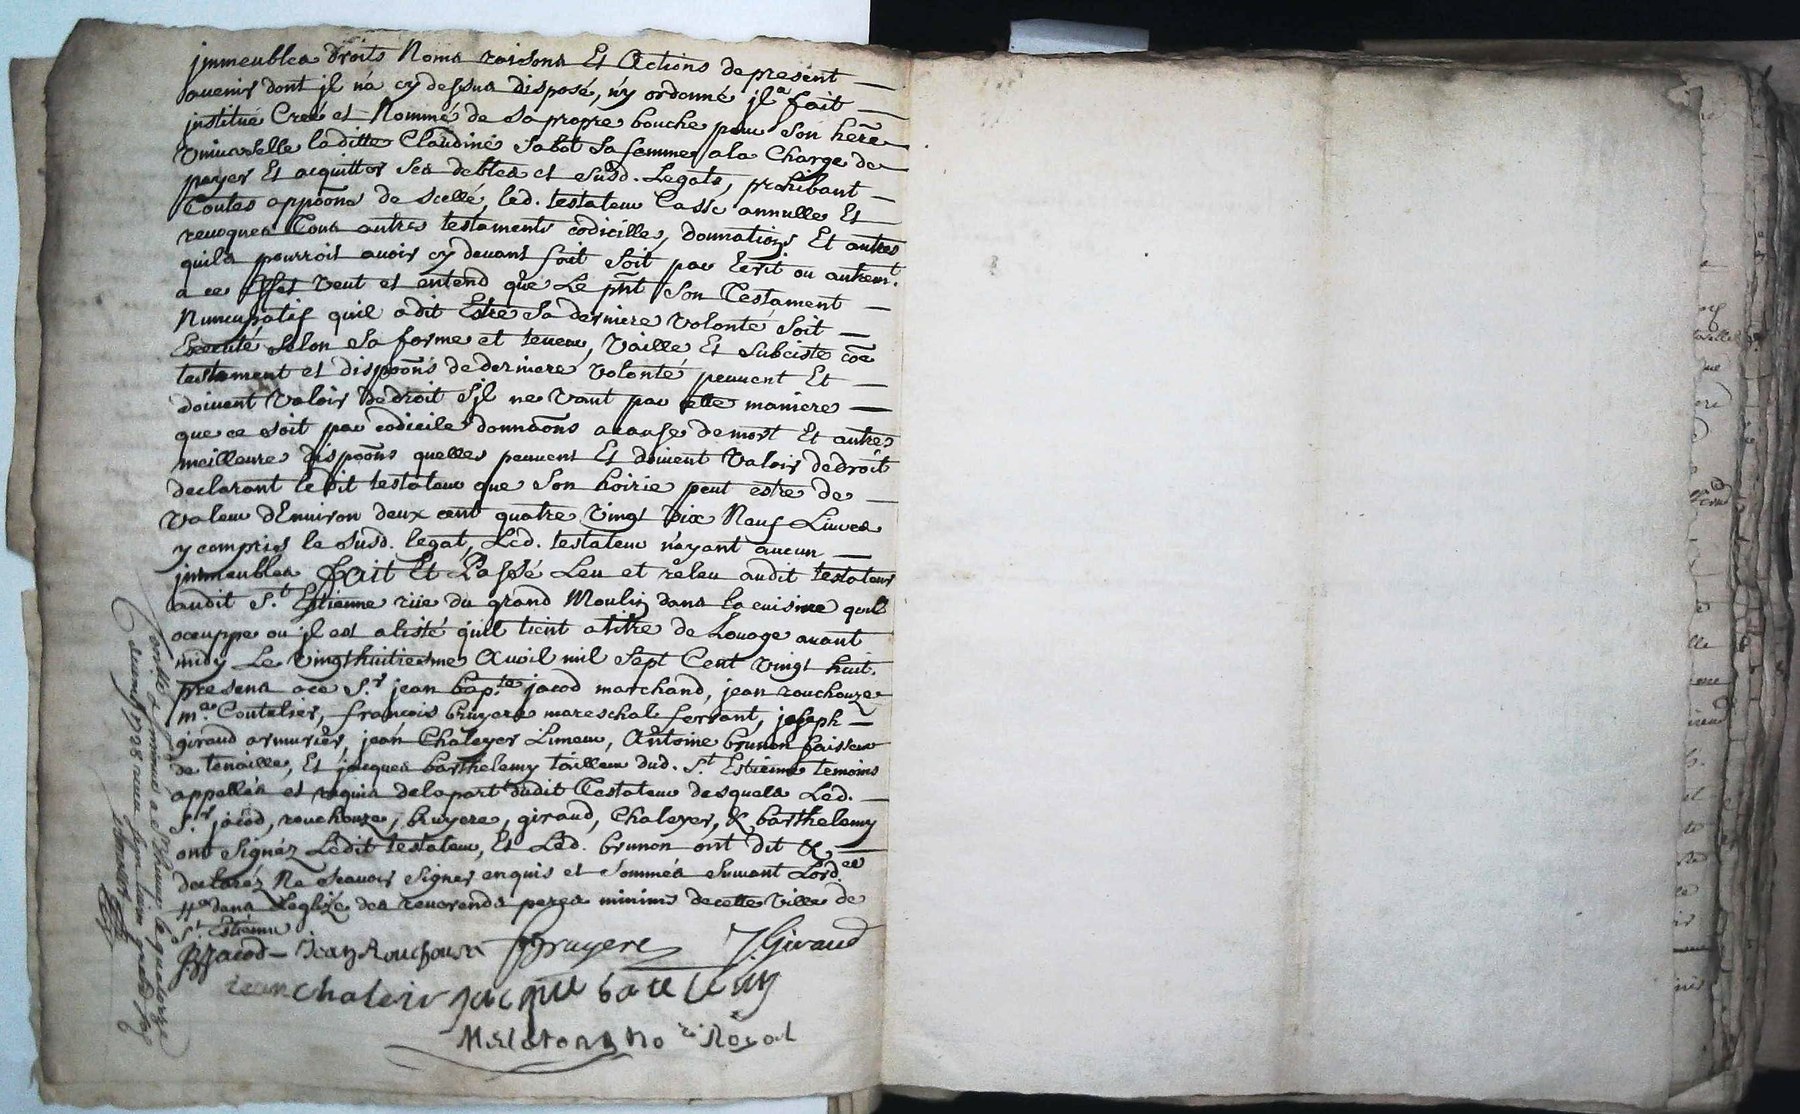 jmmeubles droits Noms raisons Et Actions de present
avenir dont jl n'a cy dessus disposé, n'y ordonné jl a fait
jnstitué Creé et Nommé de sa propre bouche pour son herere
Vniverselle laditte Claudine Sabot sa femme a la Charge de
payer Et acquitter ses debtes et susd. Legats, prohibant
Toutes appoõns de scellé, led. testateur Casse annulle Et
revoques Tous autres testaments codicilles, donnations Et autres
quils pourroit avoir cy devant fait soit par Ecrit ou autremt.
a ce Effet Veut et entend que Le pñt son Testament
Nuncupatif quil a dit Estre sa derniere Volonté soit
Executé selon sa forme et teneur, Vaille Et subciste cõe
testament et dispoõns de derniere Volonté peuvent Et
doivent Valoir de droit s'jl ne Vaut par cette maniere
que ce soit par codicile donnaõns a cause de mort Et autres
meilleures dispoõns quelles peuvent Et doivent Valoir de droit
declarant ledit testateur que son hoirie peut estre de
Valeur d'Environ deux cent quatre Vingt dix Neuf Livres
y compris le susd. legat, Led. testateur n'ayant aucun
jmmeubles fait Et Passé Leu et releu audit testateur
audit St. Estienne rüe du grand Moulin dans la cuisine quil
occuppe ou jl est alisté qu'il tient a titre de Louage avant
midy Le Vingthuitiesme Avril mil sept Cent Vingt huit.
presens a ce Sr. jean bapte. jacod marchand, jean rouchouze
me. Coutelier, françois bruyere mareschal ferrant, joseph
giraud armurier, jean Chaleyer Limeur, Antoine brunon faiseur
de tenaille, Et jacques barthelemy tailleur dud. St. Estienne temoins
appellés et requis de la part dudit Testateur desquels Led.
Sr. jacod, rouchouze, bruyere, giraud, Chaleyer, & barthelemy
ont signéz Ledit testateur, Et Led. brunon ont dit &
declaréz Ne sçavoir signer enquis et sommés suivant Lordce.
dans Leglize des reverends peres minims de cette Ville de
St. Estienne
JBJacod Jean Rouchouze FBruyere J. Giraud
iean chaleir jacque bartelemy
Melaton No re Royal
Contollé & jnsinué a St. Etienne le quatorze